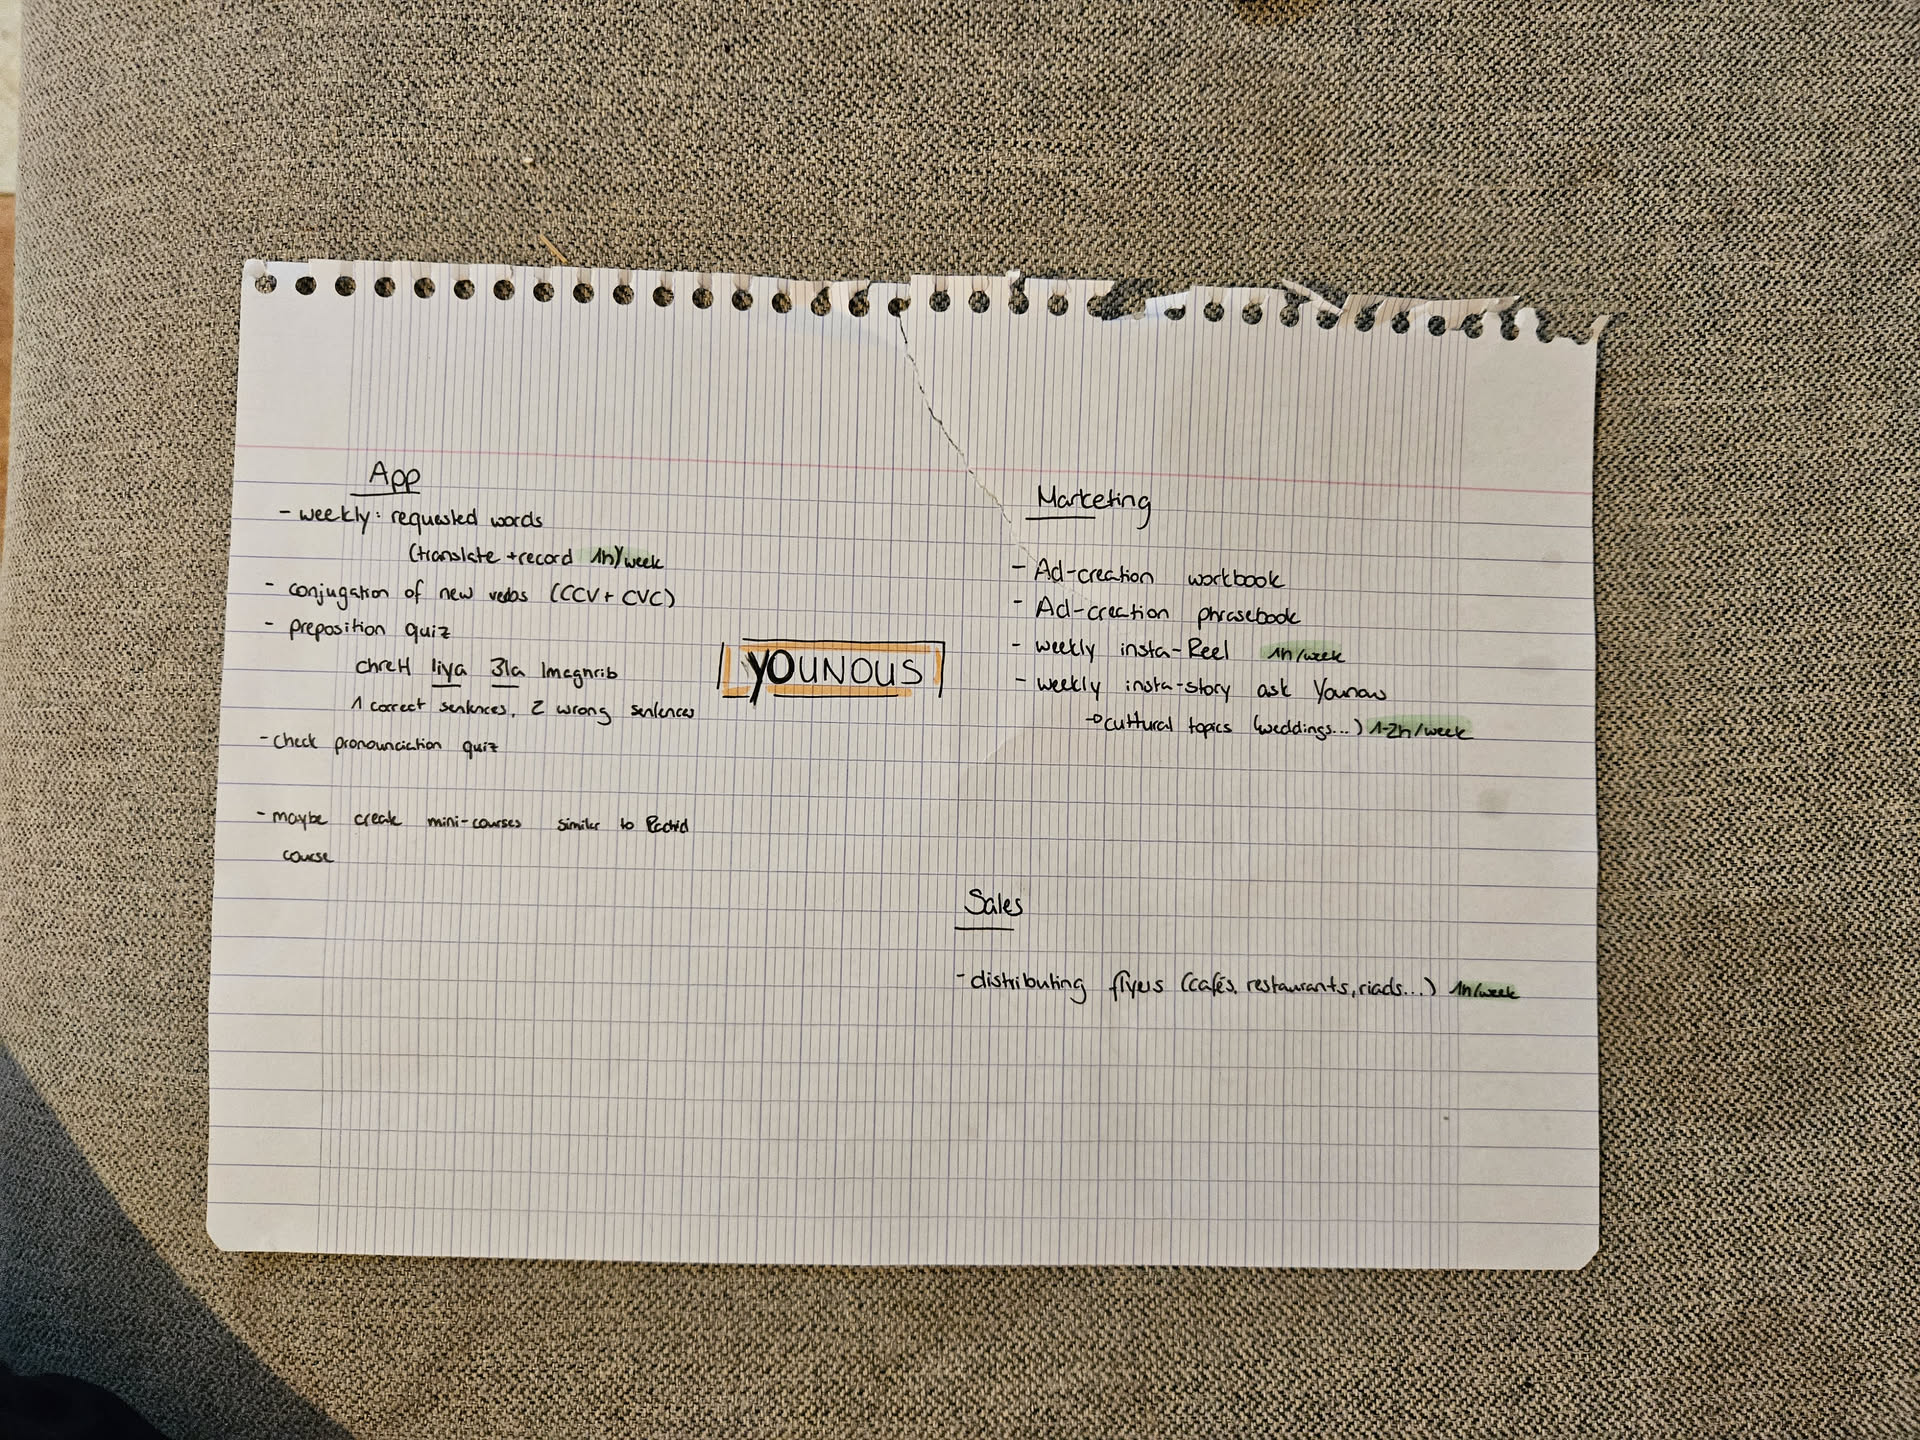 App
- weekly: requested words
(translate + record 1h)/week
- conjugation of new verbs (CCV + CVC)
- preposition quiz
chreH liya 3la lmaghrib
1 correct sentences, 2 wrong sentences
- check pronounciation quiz
- maybe create mini-courses similar to
course
YOUNOUS
Marketing
- Ad-creation workbook
- Ad-creation phrasebook
- weekly insta-Reel 1h/week
- weekly insta-story ask Younous
→ cultural topics (weddings...) 1-2h/week
Sales
- distributing flyers (cafés, restaurants, riads...) 1h/week